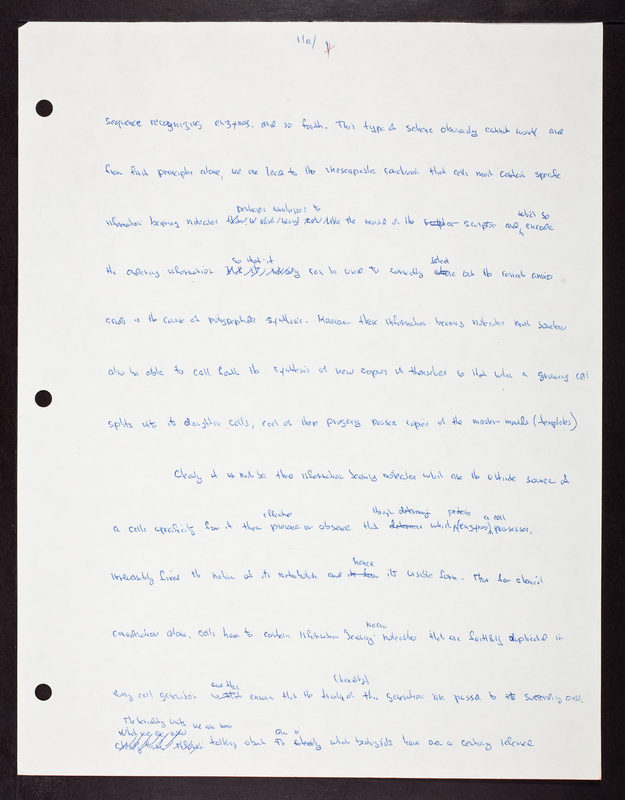 11a/
sequence recognizing enzymes, and so forth. This type of scheme obviously cannot work and
from first principles alone, we are lead to the inescapable conclusion that cells must contain specific
perhaps analogous to which so
information bearing molecules like the mould of the sculptor and encode
so that it select
the ordering information can be used to correctly out the correct amino
acids in the course of polypeptide synthesis. Moreover these information bearing molecules must somehow
also be able to call forth the synthesis of new copies of themselves so that when a growing cell
splits into its daughter cells, each of these progeny possess copies of the master moulds (templates)
Clearly it must be these information bearing molecules which are the ultimate source of
effective through determining proteins a cell
a cells specificity for it their presence or absence that which (enzymes) possesses,
hence
irreversibly fixes the nature of its metabolism and its visible form. Thus from chemical
consideration alone, cells have to contain information bearing molecules that are faithfully duplicated in
and they (heredity)
every cell generation ensure that the of this generation are passed to the succeeding ones.
The hereditary units we are now
What we are now
talking about is clearly what biologists have over a century referred